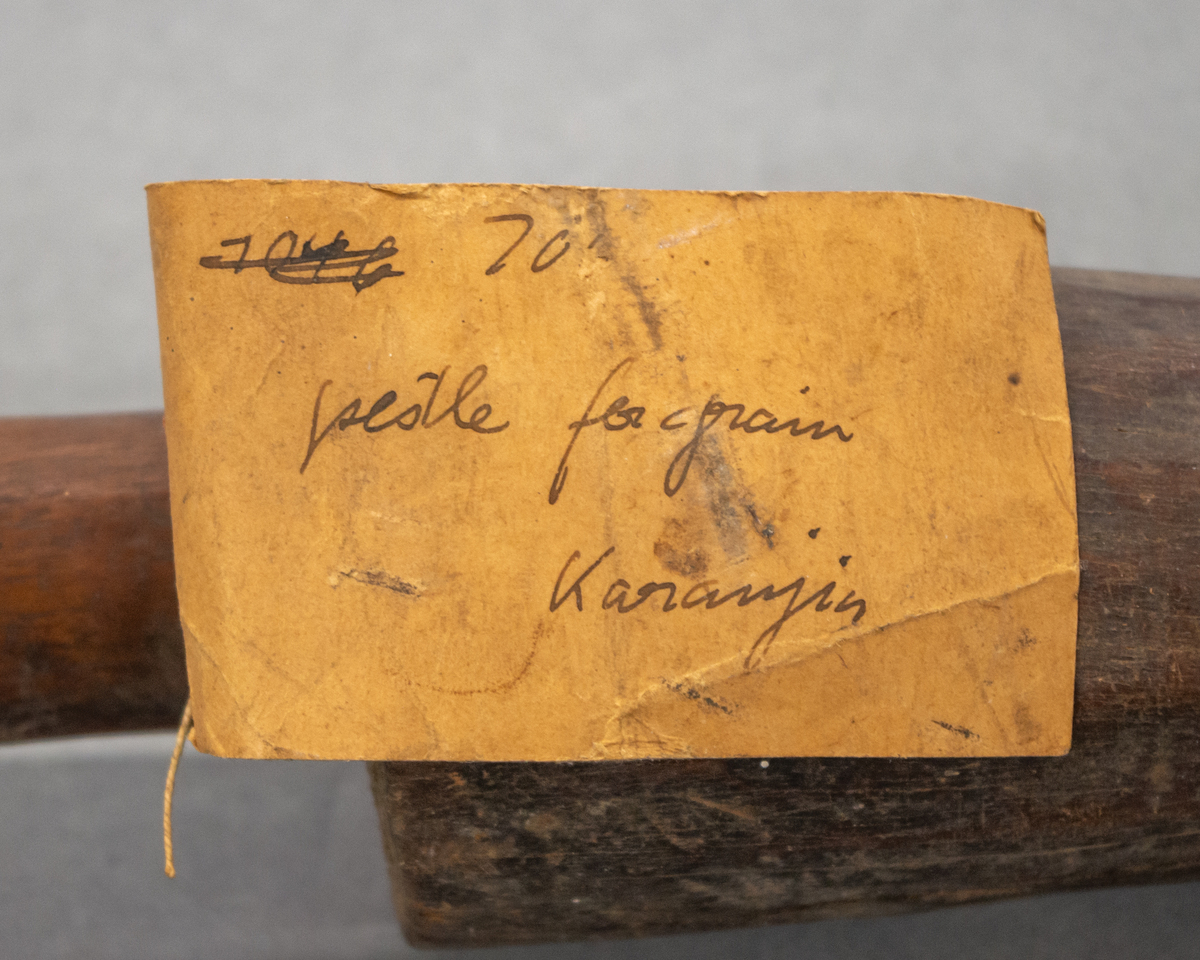 70
pestle for grain
Karanjia